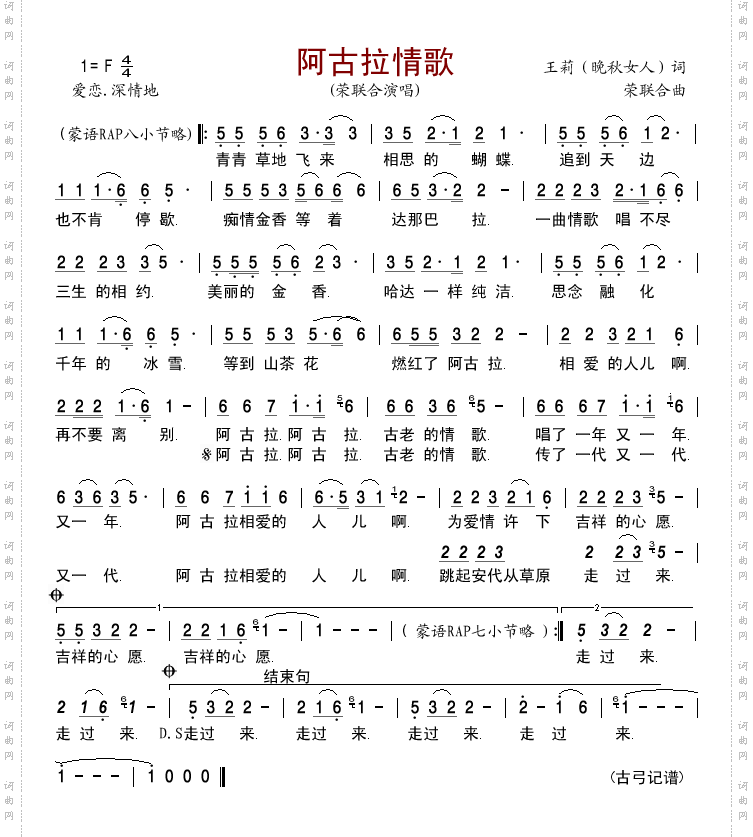 阿古拉情歌
1=F 4/4
王莉(晚秋女人)词
爱恋.深情地
(荣联合演唱)
荣联合曲
(蒙语RAP八小节略) 5 5 5 6 3·3 3 | 3 5 2·1 2 1· | 5 5 5 6 1 2· |
青青 草地 飞 来 相思 的 蝴 蝶. 追到 天 边
1 1 1·6 6 5· | 5 5 5 3 5 6 6 6 | 6 5 3·2 2 - | 2 2 2 3 2·1 6 6 |
也不肯 停 歇. 痴情金香 等 着 达那巴 拉. 一曲情歌 唱 不尽
2 2 2 3 3 5· | 5 5 5 5 6 2 3· | 3 5 2·1 2 1· | 5 5 5 6 1 2· |
三生 的相 约. 美丽的 金 香. 哈达 一 样 纯 洁. 思念 融 化
1 1 1·6 6 5· | 5 5 5 3 5·6 6 | 6 5 5 3 2 2 - | 2 2 3 2 1 6 |
千年 的 冰 雪. 等到 山茶 花 燃红了 阿古 拉. 相 爱 的人儿 啊.
2 2 2 1·6 1 - | 6 6 7 1·1 5 6 | 6 6 3 6 6 5 - | 6 6 6 7 1·1 1 6 |
再不要 离 别. 阿 古 拉.阿 古 拉. 古老 的情 歌. 唱了 一年 又 一 年.
阿 古 拉.阿 古 拉. 古老 的情 歌. 传了 一代 又 一 代.
6 3 6 3 5· | 6 6 7 1 1 6 | 6·5 3 1 1 2 - | 2 2 3 2 1 6 | 2 2 2 3 3 5 - |
又一 年. 阿 古 拉相爱的 人 儿 啊. 为爱情 许 下 吉祥 的心 愿.
2 2 2 3 2 2 3 3 5 - |
又一 代. 阿 古 拉相爱的 人 儿 啊. 跳起安代从草原 走 过 来.
1 2
5 5 3 2 2 - | 2 2 1 6 6 1 - | 1 - - - | ( 蒙语RAP七小节略 ) 5 3 2 2 - |
吉祥的心 愿. 吉祥的心 愿. 走 过 来.
结束句
2 1 6 6 1 - | 5 3 2 2 - | 2 1 6 6 1 - | 5 3 2 2 - | 2 - 1 6 | 6 1 - - - |
走 过 来. D.S走过 来. 走过 来. 走过 来. 走 过 来.
1 - - - | 1 0 0 0
(古弓记谱)
词曲网